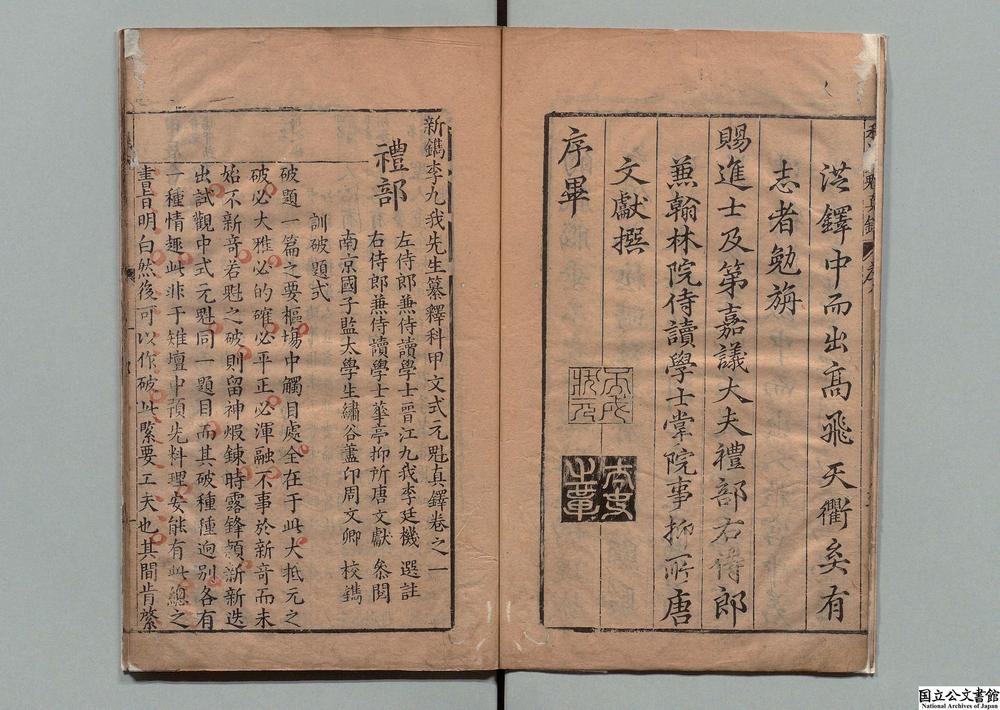 洪鐸中而出高飛天衢矣有
志者勉旃
賜進士及第嘉議大夫禮部右侍郎
兼翰林院侍讀學士掌院事抑所唐
文獻撰
序畢
新鐫李九我先生纂釋科甲文式元魁真鐸卷之一
禮部
左侍郎兼侍讀學士晉江九我李廷機 選註
右侍郎兼侍讀學士華亭抑所唐文獻 叅閱
南京國子監太學生繡谷藎印周文卿 校鐫
訓破題式
破題一篇之要樞塲中觸目處全在于此大抵元之
破必大雅必的確必平正必渾融不事於新奇而未
始不新奇若魁之破則留神煅鍊時露鋒頴新新迭
出試觀中式元魁同一題目而其破種種逈別各有
一種情趣此非于雉壇中預先料理安能有此總之
書旨明白然後可以作破此緊要工夫也其間肯綮
国立公文書館
National Archives of Japan